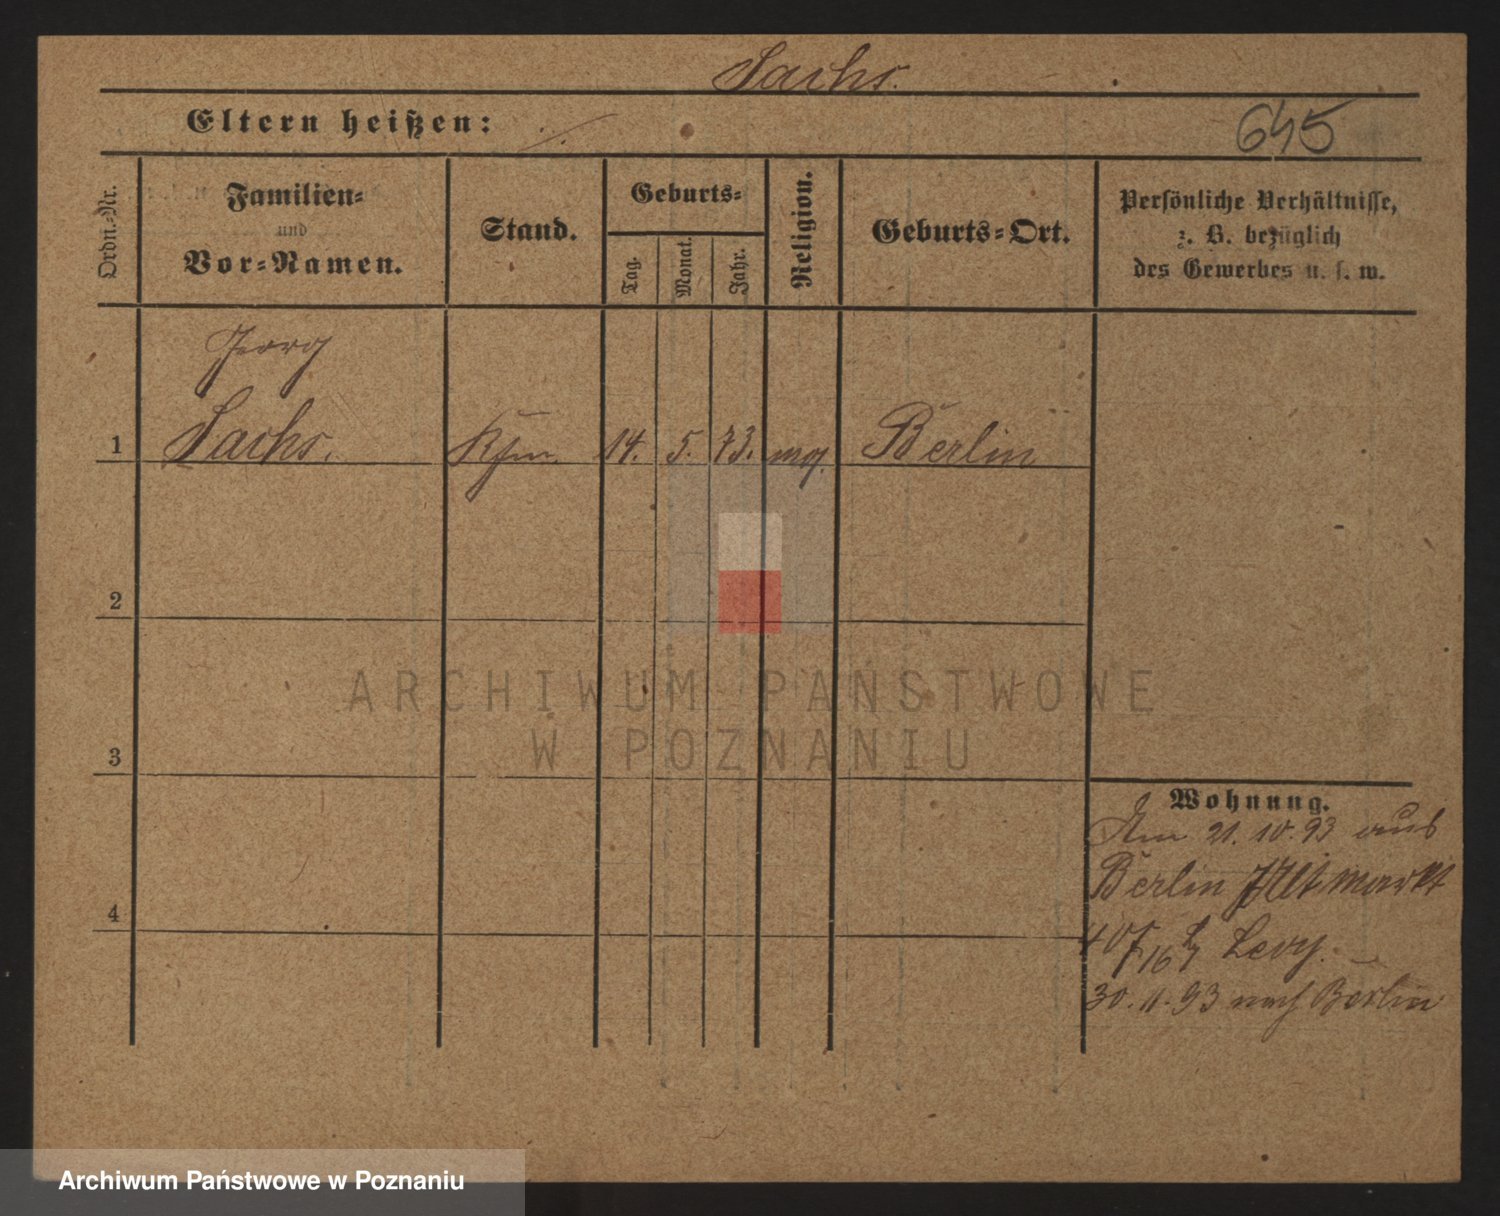 Sachs.
Eltern heißen:
645
Ordn.=Nr.
Familien=
und
Vor=Namen.
Stand.
Geburts=
Tag.
Monat.
Jahr.
Religion.
Geburts=Ort.
Persönliche Verhältnisse,
z. B. bezüglich
des Gewerbes u. s. w.
Georg
1 Sachs. Kfm. 14. 5. 73. mos. Berlin
2
3
4
Wohnung.
Am 21. 10. 93 aus
Berlin Altmarkt
40 Levy.
30. 11. 93 nach Berlin
ARCHIWUM PAŃSTWOWE
W POZNANIU
Archiwum Państwowe w Poznaniu